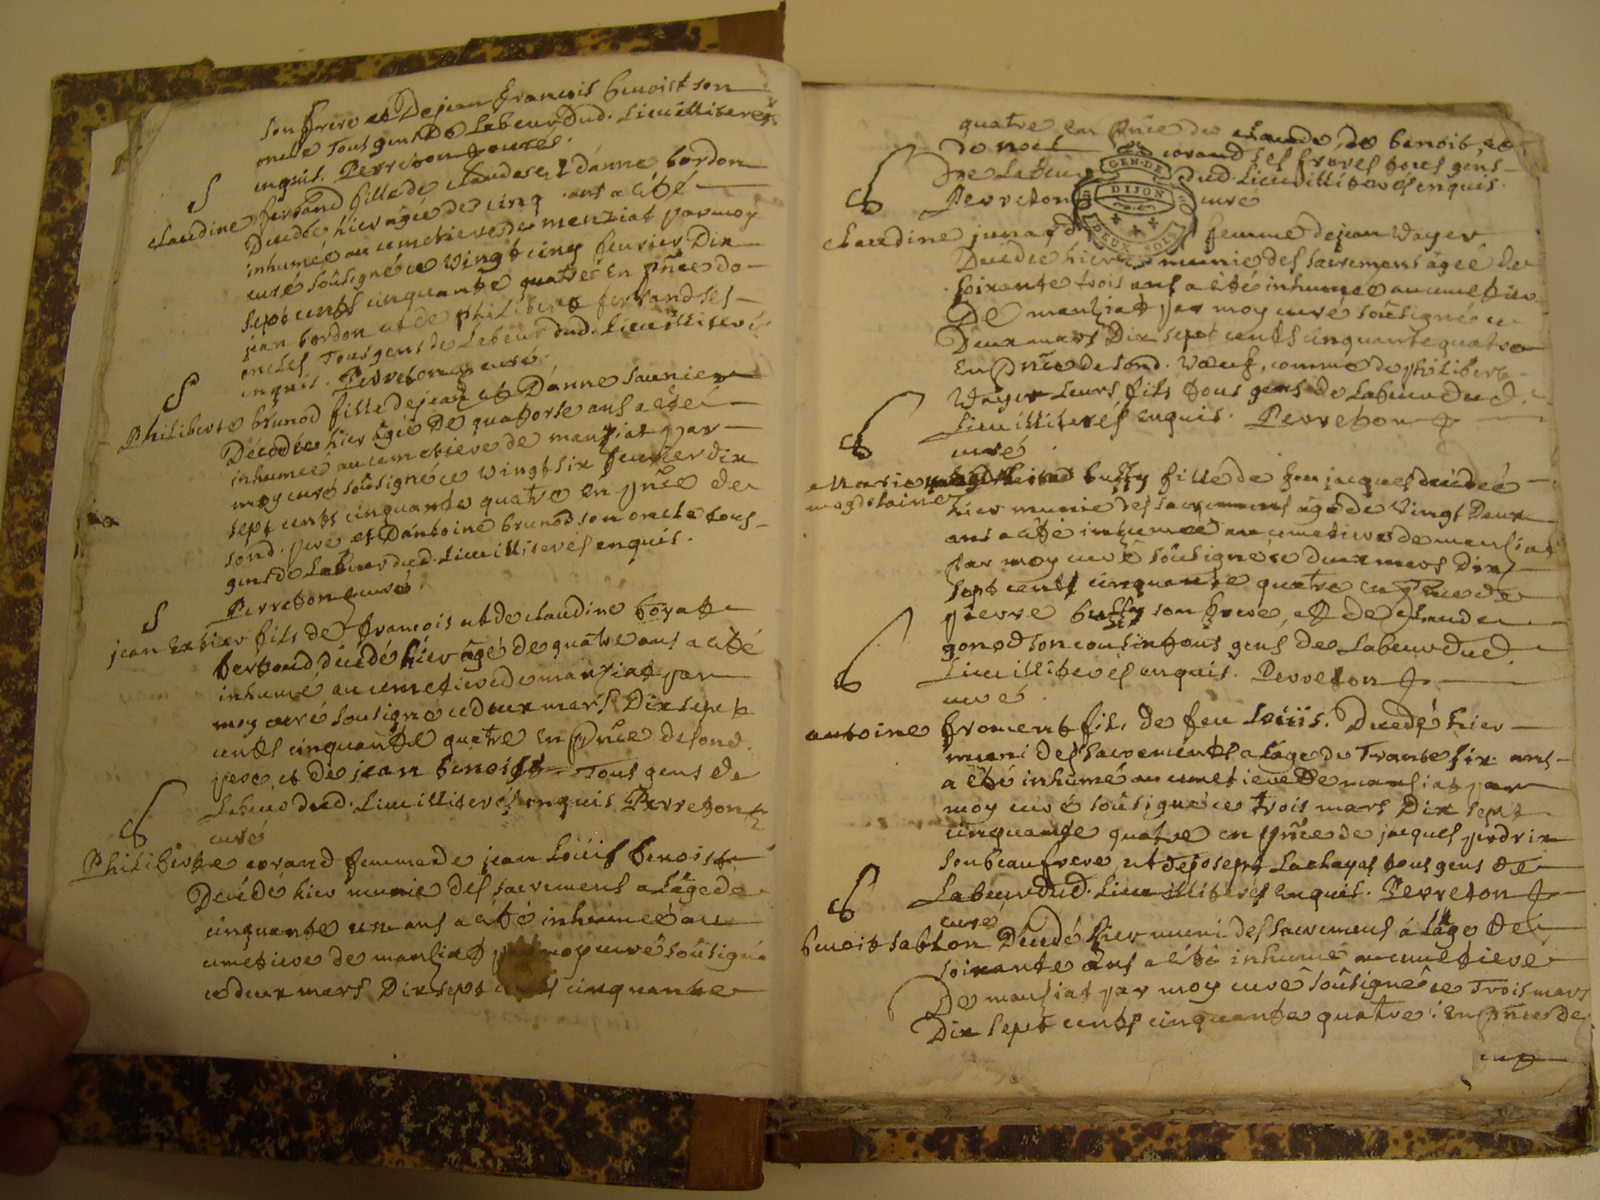 son frere et De jean francois benoist son
oncle Tous gens De Labeur dud. Lieu illiterés
enquis. Perreton curé.
S
claudine ferrand fille de claude et Danne bordon
Decedée hier agée de cinq ans a été
inhumée au cemetiere de menziat par moy
curé soûsigné ce vingt cinq feurier Dix
sept cents cinquante quatre En pnce de
jean bordon et de philibert ferrand ses
oncles Tous gens de Labeur dud. Lieu illiterés
enquis. Perreton curé.
S
Philiberte brunod fille de jean et Danne saunier
Décedée hier âgée De quatorse ans a eté
inhumée au cemetiere de manziat par
moy curé soûsigné ce vingt six feurier dix
sept cents cinquante quatre En pnce de
sond. pere et Dantoine brunod son oncle tous
gens de Labeur dud. Lieu illiterés enquis.
Perreton curé.
S
jean Exbier fils de francois et de claudine
décedé hier âgé de quatre ans a été
inhumé au cemetiere de manziat par
moy curé soûsigné ce deux mars Dix sept
cents cinquante quatre En pnce de sond.
pere et de jean benoist Tous gens de
Labeur dud. Lieu illiterés enquis Perreton
curé
Philiberte corand femme de jean Loüis benoist
Decedé hier munie des sacremens a Lâge de
cinquante un ans a été inhumée au
cemetiere de manziat par moy curé soûsigné
ce deux mars Dix sept cents cinquante
quatre En pnce de claude, de benoit, et
de noel corand ses freres tous gens
De Labeur dud. Lieu illiterés enquis.
Perreton curé
GEN. DE
DIJON
DEUX SOLS
claudine femme de jean Vayer
Decedée hier munie des sacremens âgée de
soixante trois ans a été inhumée au cemetiere
De manziat par moy curé soûsigné ce
Deux mars Dix sept cents cinquante quatre
En pnce de sond. Voeuf, comme de philibert
Vayer Leurs fils tous gens de Labeur dud.
Lieu illiterés enquis. Perreton
curé
Marie buffy fille de feu jacques decedée
magdelaine hier munie des sacremens âgée de vingt Deux
ans a été inhumée au cemetiere de manziat
par moy curé soûsigné ce deux mars Dix
sept cents cinquante quatre en pnce de
pierre buffy son frere, et de claude
gonod son cousin tous gens de Labeur dud.
Lieu illiterés enquis. Perreton
curé
antoine froment fils de feu Loüis. Decedé hier
muni des sacremens a Lage de Trante six ans
a été inhumé au cemetiere De manziat par
moy curé soûsigné ce trois mars Dix sept
cinquante quatre en pnce de jacques perdrix
son beaufrere et de joseph Lachayes tous gens de
Labeur dud. Lieu illiterés enquis. Perreton
curé
benoit sablon Décedé hier muni des sacremens á Lâge de
soixante ans a été inhumé au cemetiere
De manziat par moy curé soûsigné ce Trois mars
Dix sept cents cinquante quatre. En pnce de